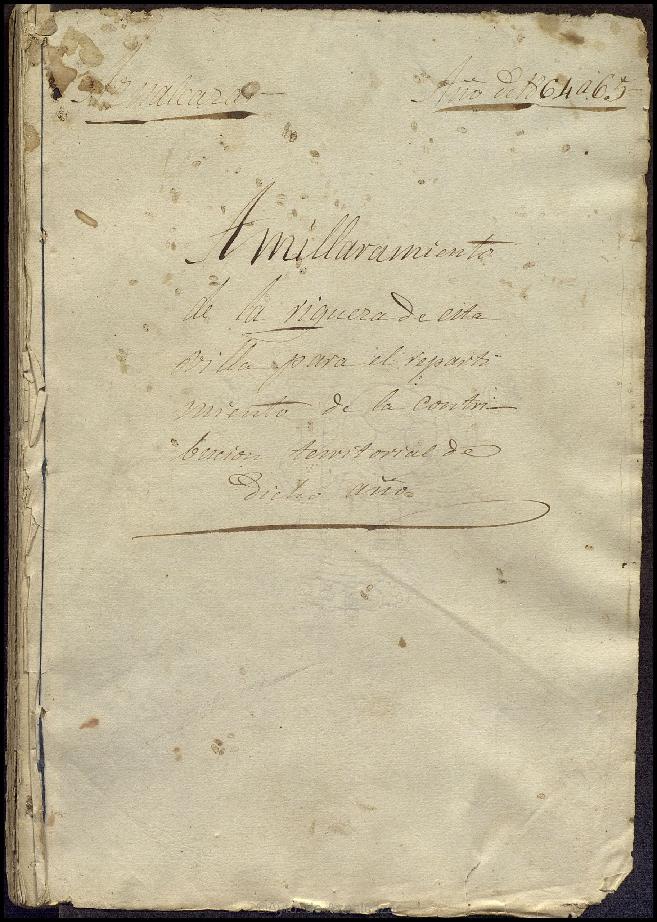 Aznalcazar
Año de 1864 a 65
Amillaramiento
de la riqueza de esta
villa para el reparti
miento de la contri
bucion territorial de
dicho año